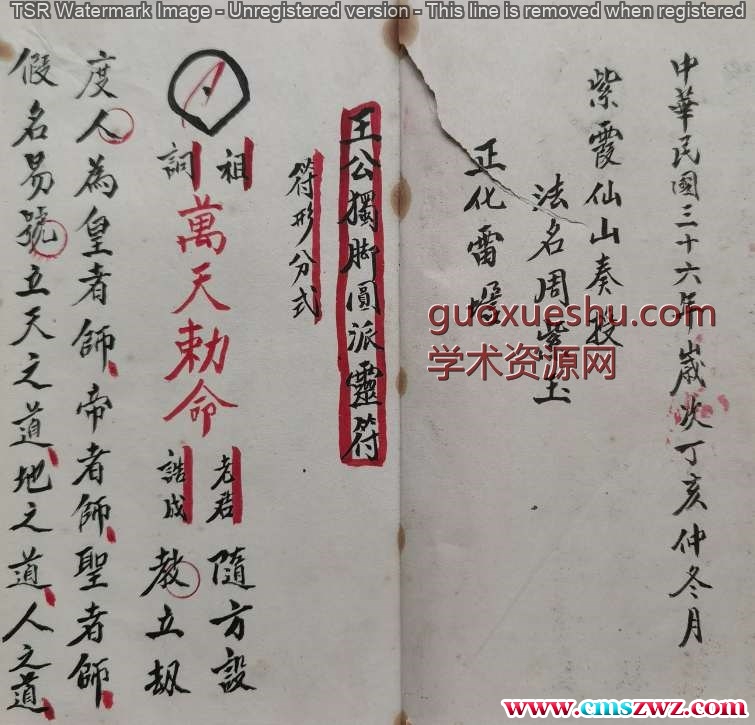 TSR Watermark Image - Unregistered version - This line is removed when registered
中華民國三十六年歲次丁亥仲冬月
紫霞仙山奏投
法名周紫玉
正化雷壇
王公獨脚圓派靈符
符形分式
祖
詞
萬天勅命
老君
誥成
隨方設
教立劫
度人為皇者師帝者師聖者師
假名易號立天之道地之道人之道
guoxueshu.com
学术资源网
www.cmszwz.com